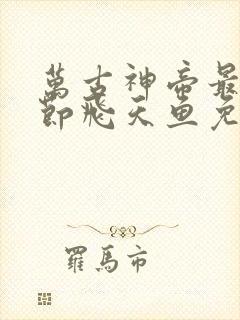 萬古神帝最
節飛天魚免
羅馬市